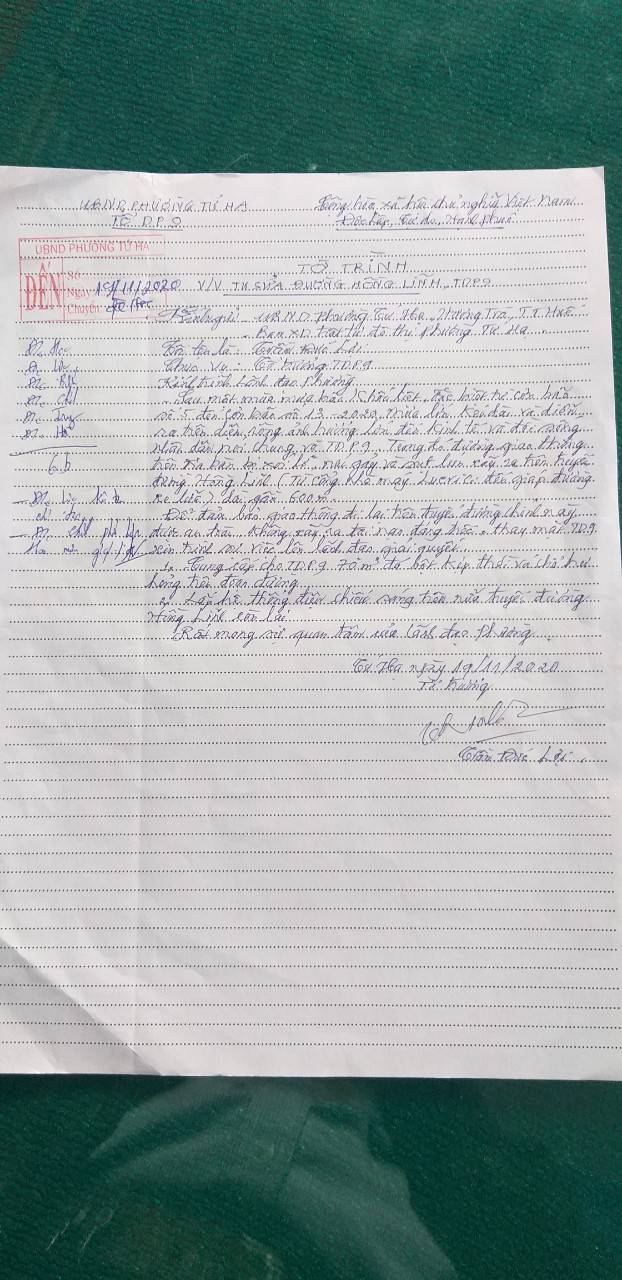 UBND PHƯỜNG TỨ HẠ
TỔ D.P.9
Cộng hòa xã hội chủ nghĩa Việt Nam
Độc lập, Tự do, Hạnh phúc
UBND PHƯỜNG TỨ HẠ
ĐẾN
Số
Ngày 19/11/2020
Chuyển:
TỜ TRÌNH
V/V TU SỬA ĐƯỜNG HỒNG LĨNH, TDP9
Kính gửi: UBND phường Tứ Hạ, Hương Trà, T.T. Huế
Ban XD đô thị phường Tứ Hạ
Tôi tên là: Trần Đức Lợi
Chức vụ: Tổ trưởng TDP9
Kính trình lãnh đạo phường
Sau một mùa mưa bão khốc liệt, đặc biệt từ cơn bão
số 5 đến cơn bão số 13-2020, mưa lớn kéo dài và diễn
ra trên diện rộng ảnh hưởng lớn đến kinh tế và đời sống
nhân dân nói chung và TDP9. Trong đó đường giao thông
trên địa bàn bị xói lở, nứt gãy và sụt lún xảy ra trên tuyến
đường Hồng Lĩnh (Từ cổng nhà máy đến giáp đường
) dài gần 600m
Để đảm bảo giao thông đi lại trên tuyến đường chính này
được an toàn. Không xảy ra tai nạn đáng tiếc. thay mặt TDP9
xin trình sự việc lên lãnh đạo giải quyết.
1. Cung cấp cho TDP9 70 m³ đá bột kịp thời vá chỗ hư
hỏng trên đoạn đường
2. Lắp hệ thống điện chiếu sáng trên nửa tuyến đường
Hồng Lĩnh còn lại
Rất mong sự quan tâm của lãnh đạo phường
Tứ Hạ ngày 19/11/2020
Tổ trưởng
Trần Đức Lợi